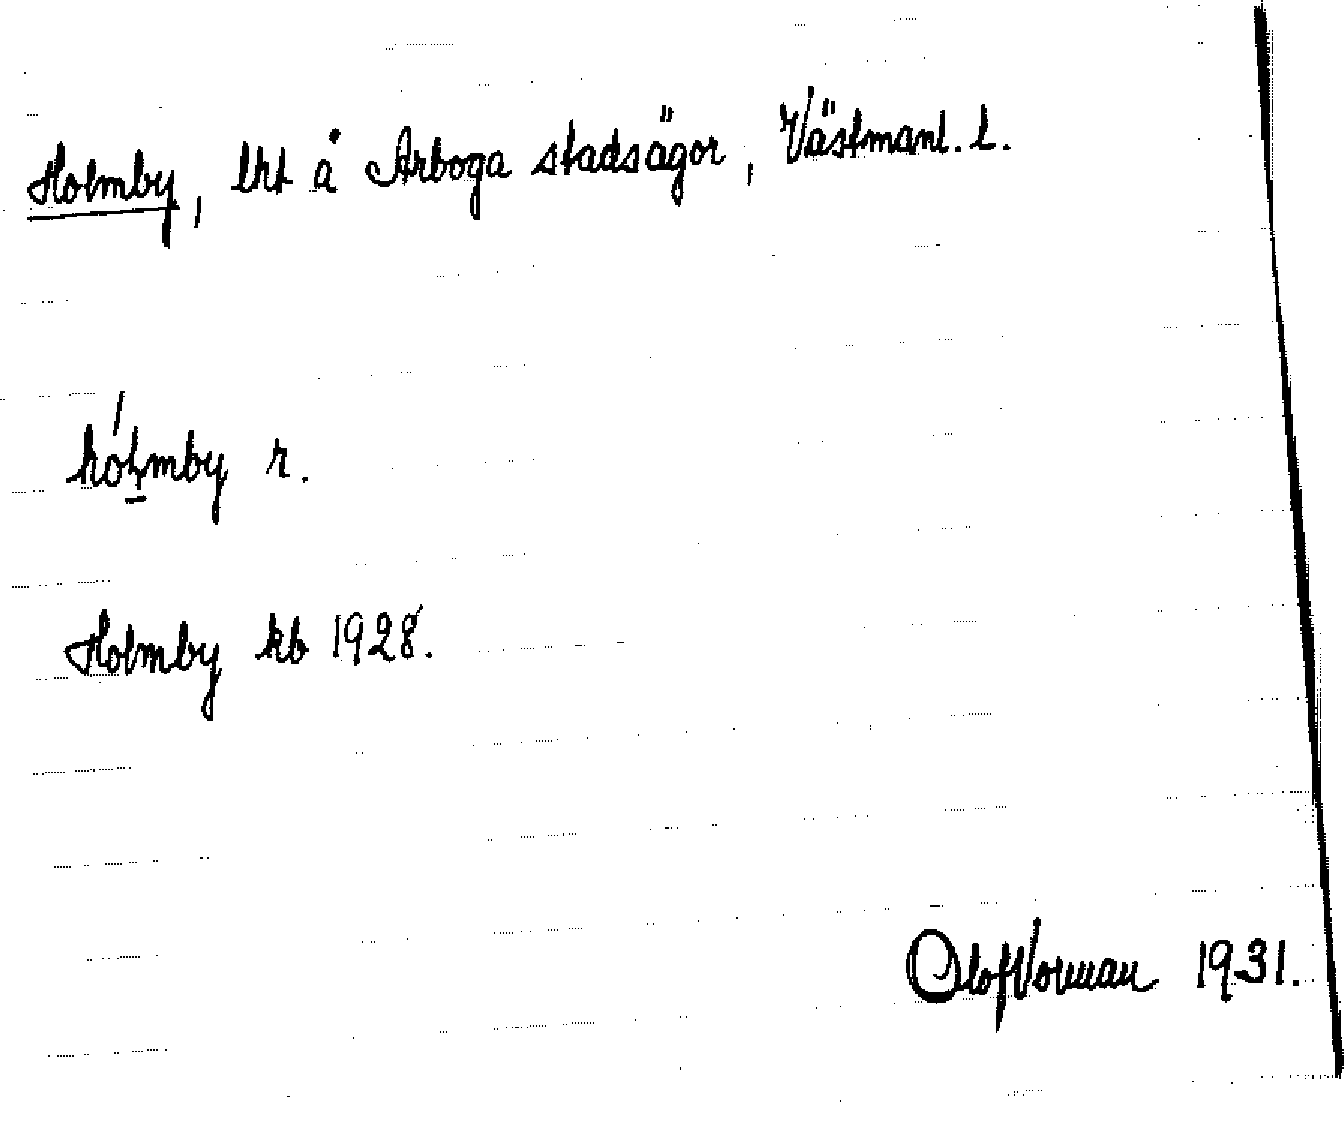 Holmby, lht å Arboga stadsägor, Västmanl. l.
hólmby r.
Holmby kb 1928.
Olof Vorman 1931.